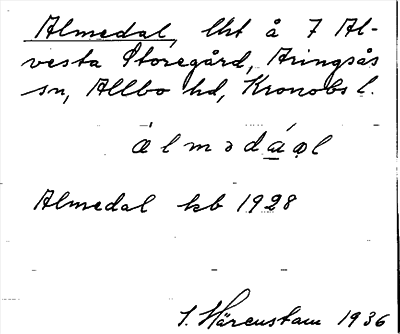 Almedal, lht å 7 Al-
vesta Storegård, Aringsås
sn, Allbo hd, Kronobs l.
àlmədá̲ǫl
Almedal kb 1928
S. Härenstam 1936